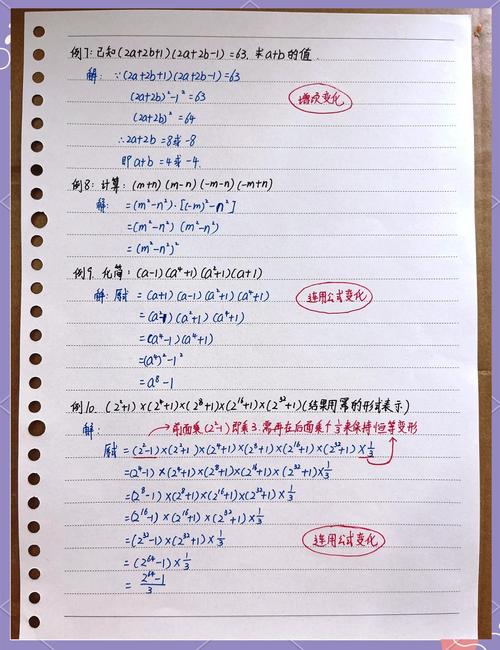 例7: 已知(2a+2b+1)(2a+2b-1)=63, 求a+b的值.
解: ∵(2a+2b+1)(2a+2b-1)=63
(2a+2b)²-1²=63
增项变化
(2a+2b)²=64
∴2a+2b=8或-8
即a+b=4或-4.
例8: 计算: (m+n)(m-n)(-m-n)(-m+n)
解: =(m²-n²)·[(-m)²-n²]
=(m²-n²)(m²-n²)
=(m²-n²)²
例9. 化简: (a-1)(a⁴+1)(a²+1)(a+1)
解: 原式=(a+1)(a-1)(a²+1)(a⁴+1)
连用公式变化
=(a²-1)(a²+1)(a⁴+1)
=(a⁴-1)(a⁴+1)
=(a⁴)²-1²
=a⁸-1
例10. (2²+1)×(2⁴+1)×(2⁸+1)×(2¹⁶+1)×(2³²+1)(结果用幂的形式表示)
解: →前面乘(2²-1)即乘3, 需再在后面乘个1/3来保持恒等变形
原式=(2²-1)×(2²+1)×(2⁴+1)×(2⁸+1)×(2¹⁶+1)×(2³²+1)×1/3
=(2⁴-1)×(2⁴+1)×(2⁸+1)×(2¹⁶+1)×(2³²+1)×1/3
=(2⁸-1)×(2⁸+1)×(2¹⁶+1)×(2³²+1)×1/3
=(2¹⁶-1)×(2¹⁶+1)×(2³²+1)×1/3
=(2³²-1)×(2³²+1)×1/3
连用公式变化
=(2⁶⁴-1)×1/3
=(2⁶⁴-1)/3